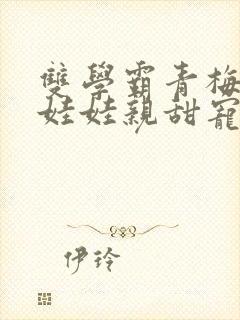 雙學霸青梅
娃娃親甜寵
伊玲